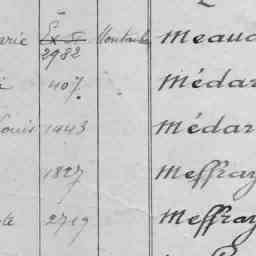 arie 2982 Meaud
407 Médar
Louis 1443 Médar
1827 Meffray
2719 Meffray